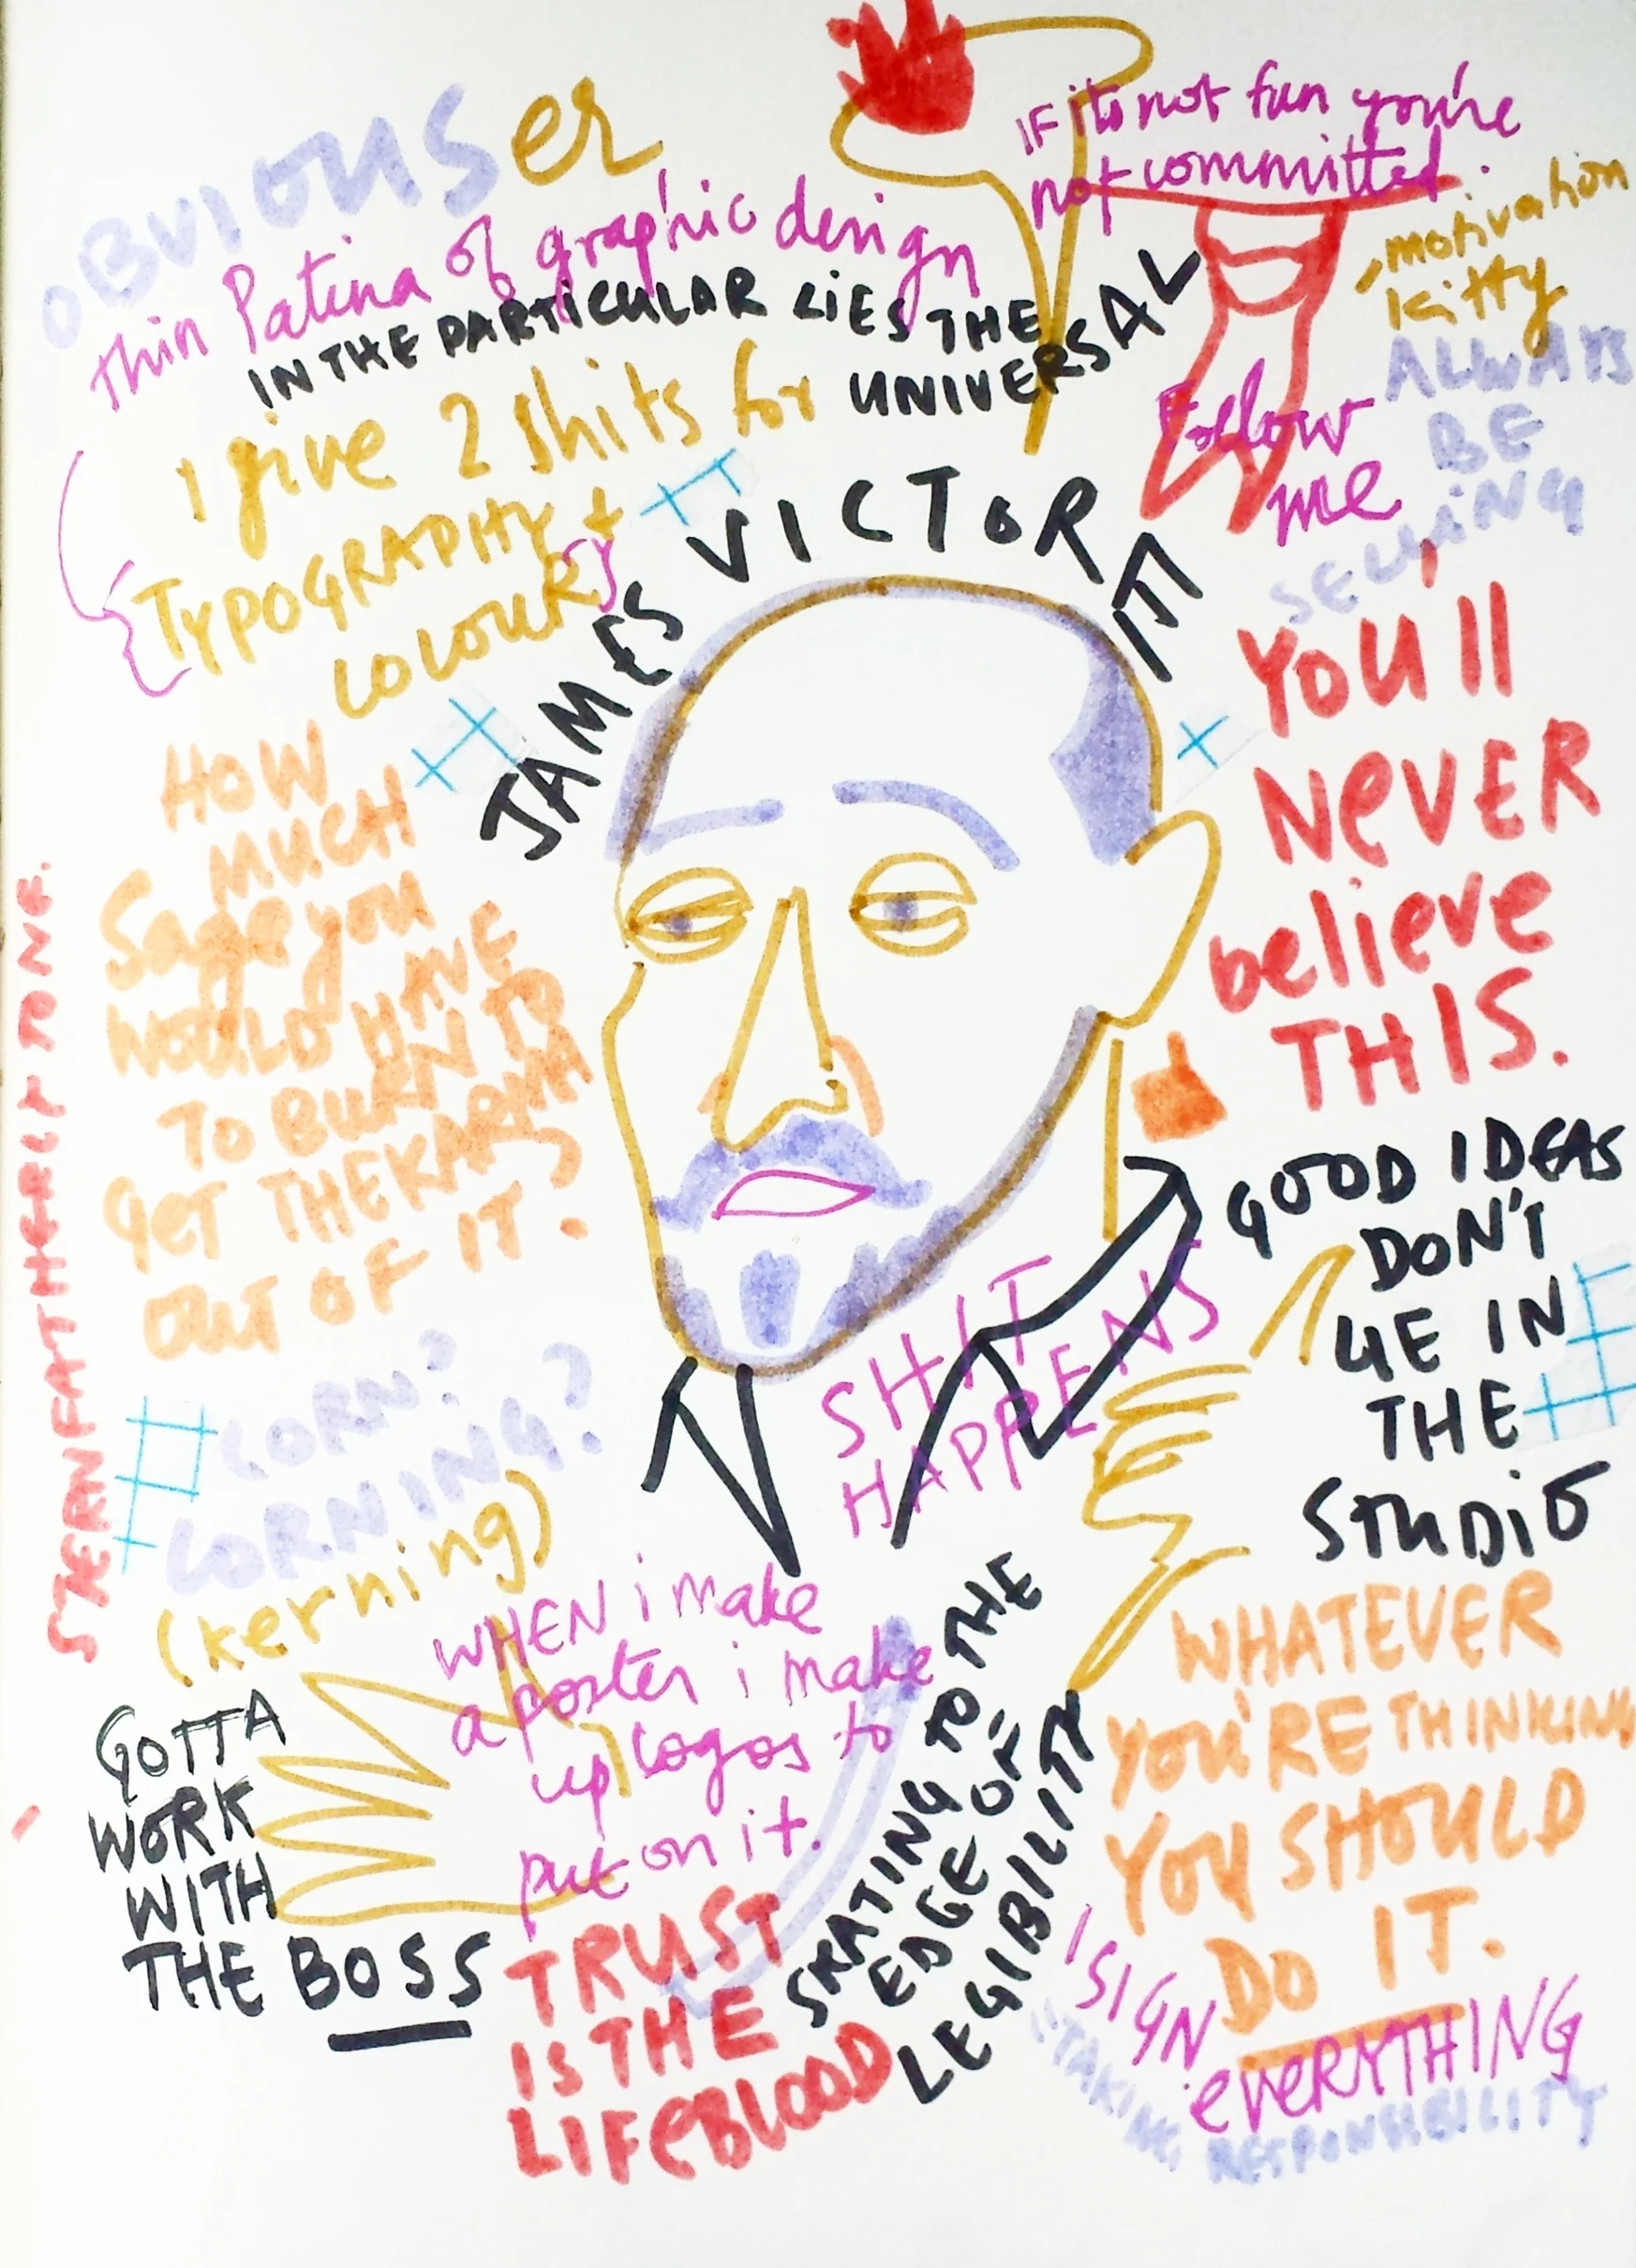 OBVIOUSer
Thin Patina of graphic design
IN THE PARTICULAR LIES THE
UNIVERSAL
I give 2 shits for
TYPOGRAPHY +
COLOUR(S)
IF its not fun you're
not committed.
motivation
kitty
Follow
me
ALWAYS
BE
SELLING
JAMES VICTORE
YOU'll
NeVER
believe
THIS.
HOW
MUCH
Sage you
WOULD HAVE
TO BURN TO
GET THE KARMA
OUT OF IT?
STERN FATHERLY TONE.
GOOD IDEAS
DON'T
LIE IN
THE
STUDIO
SHIT
HAPPENS
CORN?
CORNING?
(kerning)
WHEN i make
a poster i make
up logos to
put on it.
GOTTA
WORK
WITH
THE BOSS
TRUST
IS THE
LIFeBLOOD
SKATING TO THE
EDGE OF
LEGIBILITY
WHATEVER
YOU'RE THINKING
YOU SHOULD
DO IT.
I SIGN
everYTHING
"TAKING RESPONSIBILITY